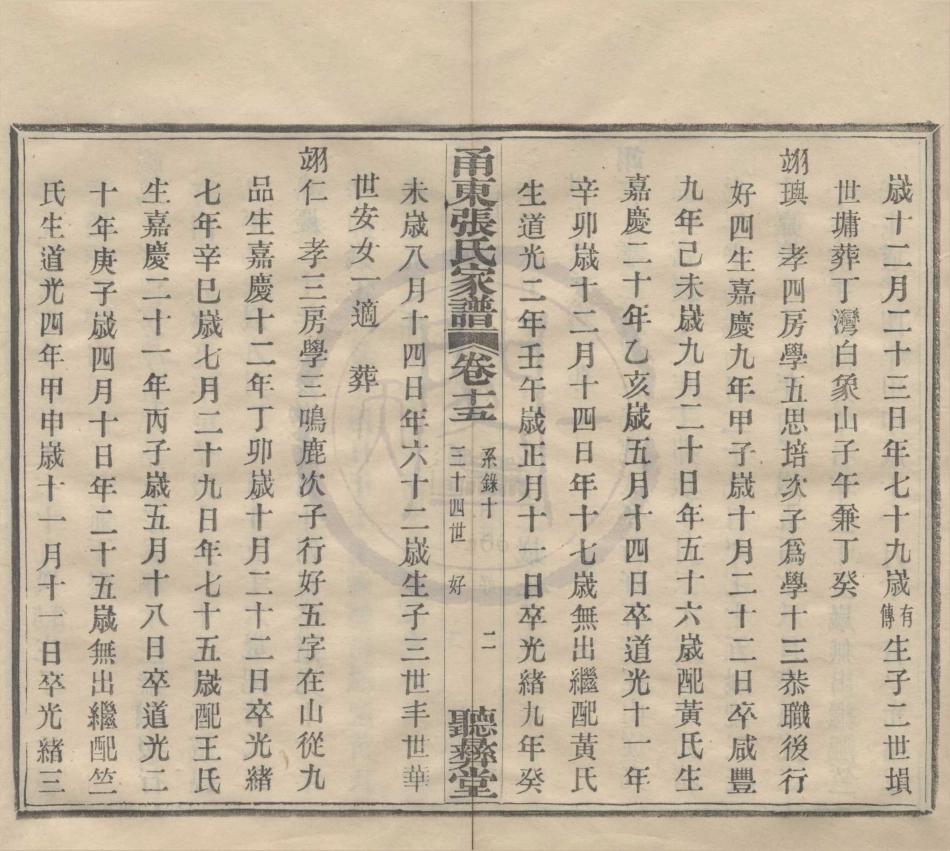 歲十二月二十三日年七十九歲有傳生子二世塤
世墉葬丁灣白象山子午兼丁癸
翊璵孝四房學五思培次子爲學十三恭職後行
好四生嘉慶九年甲子歲十月二十二日卒咸豐
九年己未歲九月二十日年五十六歲配黃氏生
嘉慶二十年乙亥歲五月十四日卒道光十一年
辛卯歲十二月十四日年十七歲無出繼配黃氏
生道光二年壬午歲正月十一日卒光緒九年癸
甬東張氏家譜 卷十五 系錄十 三十四世 好 二 聽彝堂
未歲八月十四日年六十二歲生子三世丰世華
世安女一適 葬
翊仁孝三房學三鳴鹿次子行好五字在山從九
品生嘉慶十二年丁卯歲十月二十二日卒光緒
七年辛巳歲七月二十九日年七十五歲配王氏
生嘉慶二十一年丙子歲五月十八日卒道光二
十年庚子歲四月十日年二十五歲無出繼配竺
氏生道光四年甲申歲十一月十一日卒光緒三